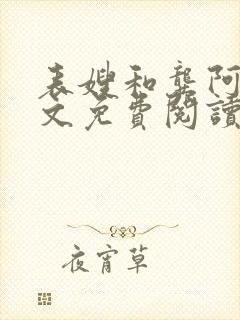 表嫂和龔阿
文免費閱讀
夜宵草